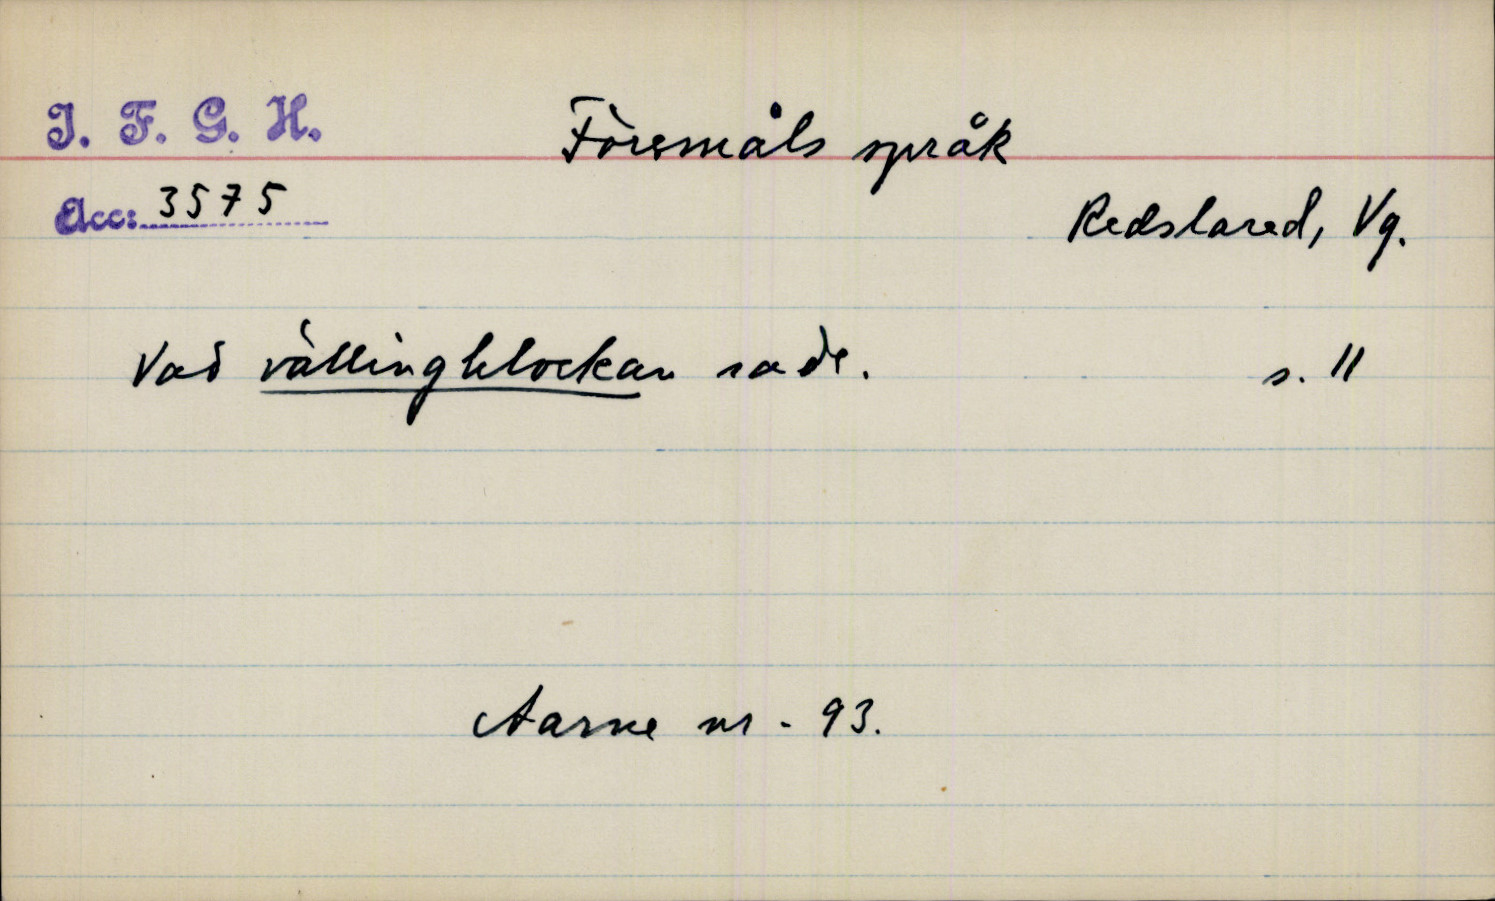 I. F. G. H.
Föremåls språk
Acc: 3575
Redslared, Vg.
Vad vällingklockan sade. s. 11
Aarne nr. 93.